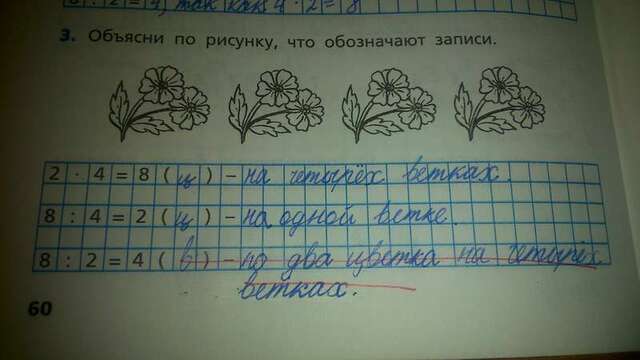 8 : 2 = 4, так как 4 · 2 = 8
3. Объясни по рисунку, что обозначают записи.
2 · 4 = 8 ( ц ) – на четырёх ветках.
8 : 4 = 2 ( ц ) – на одной ветке.
8 : 2 = 4 ( в ) – по два цветка на четырёх
ветках.
60